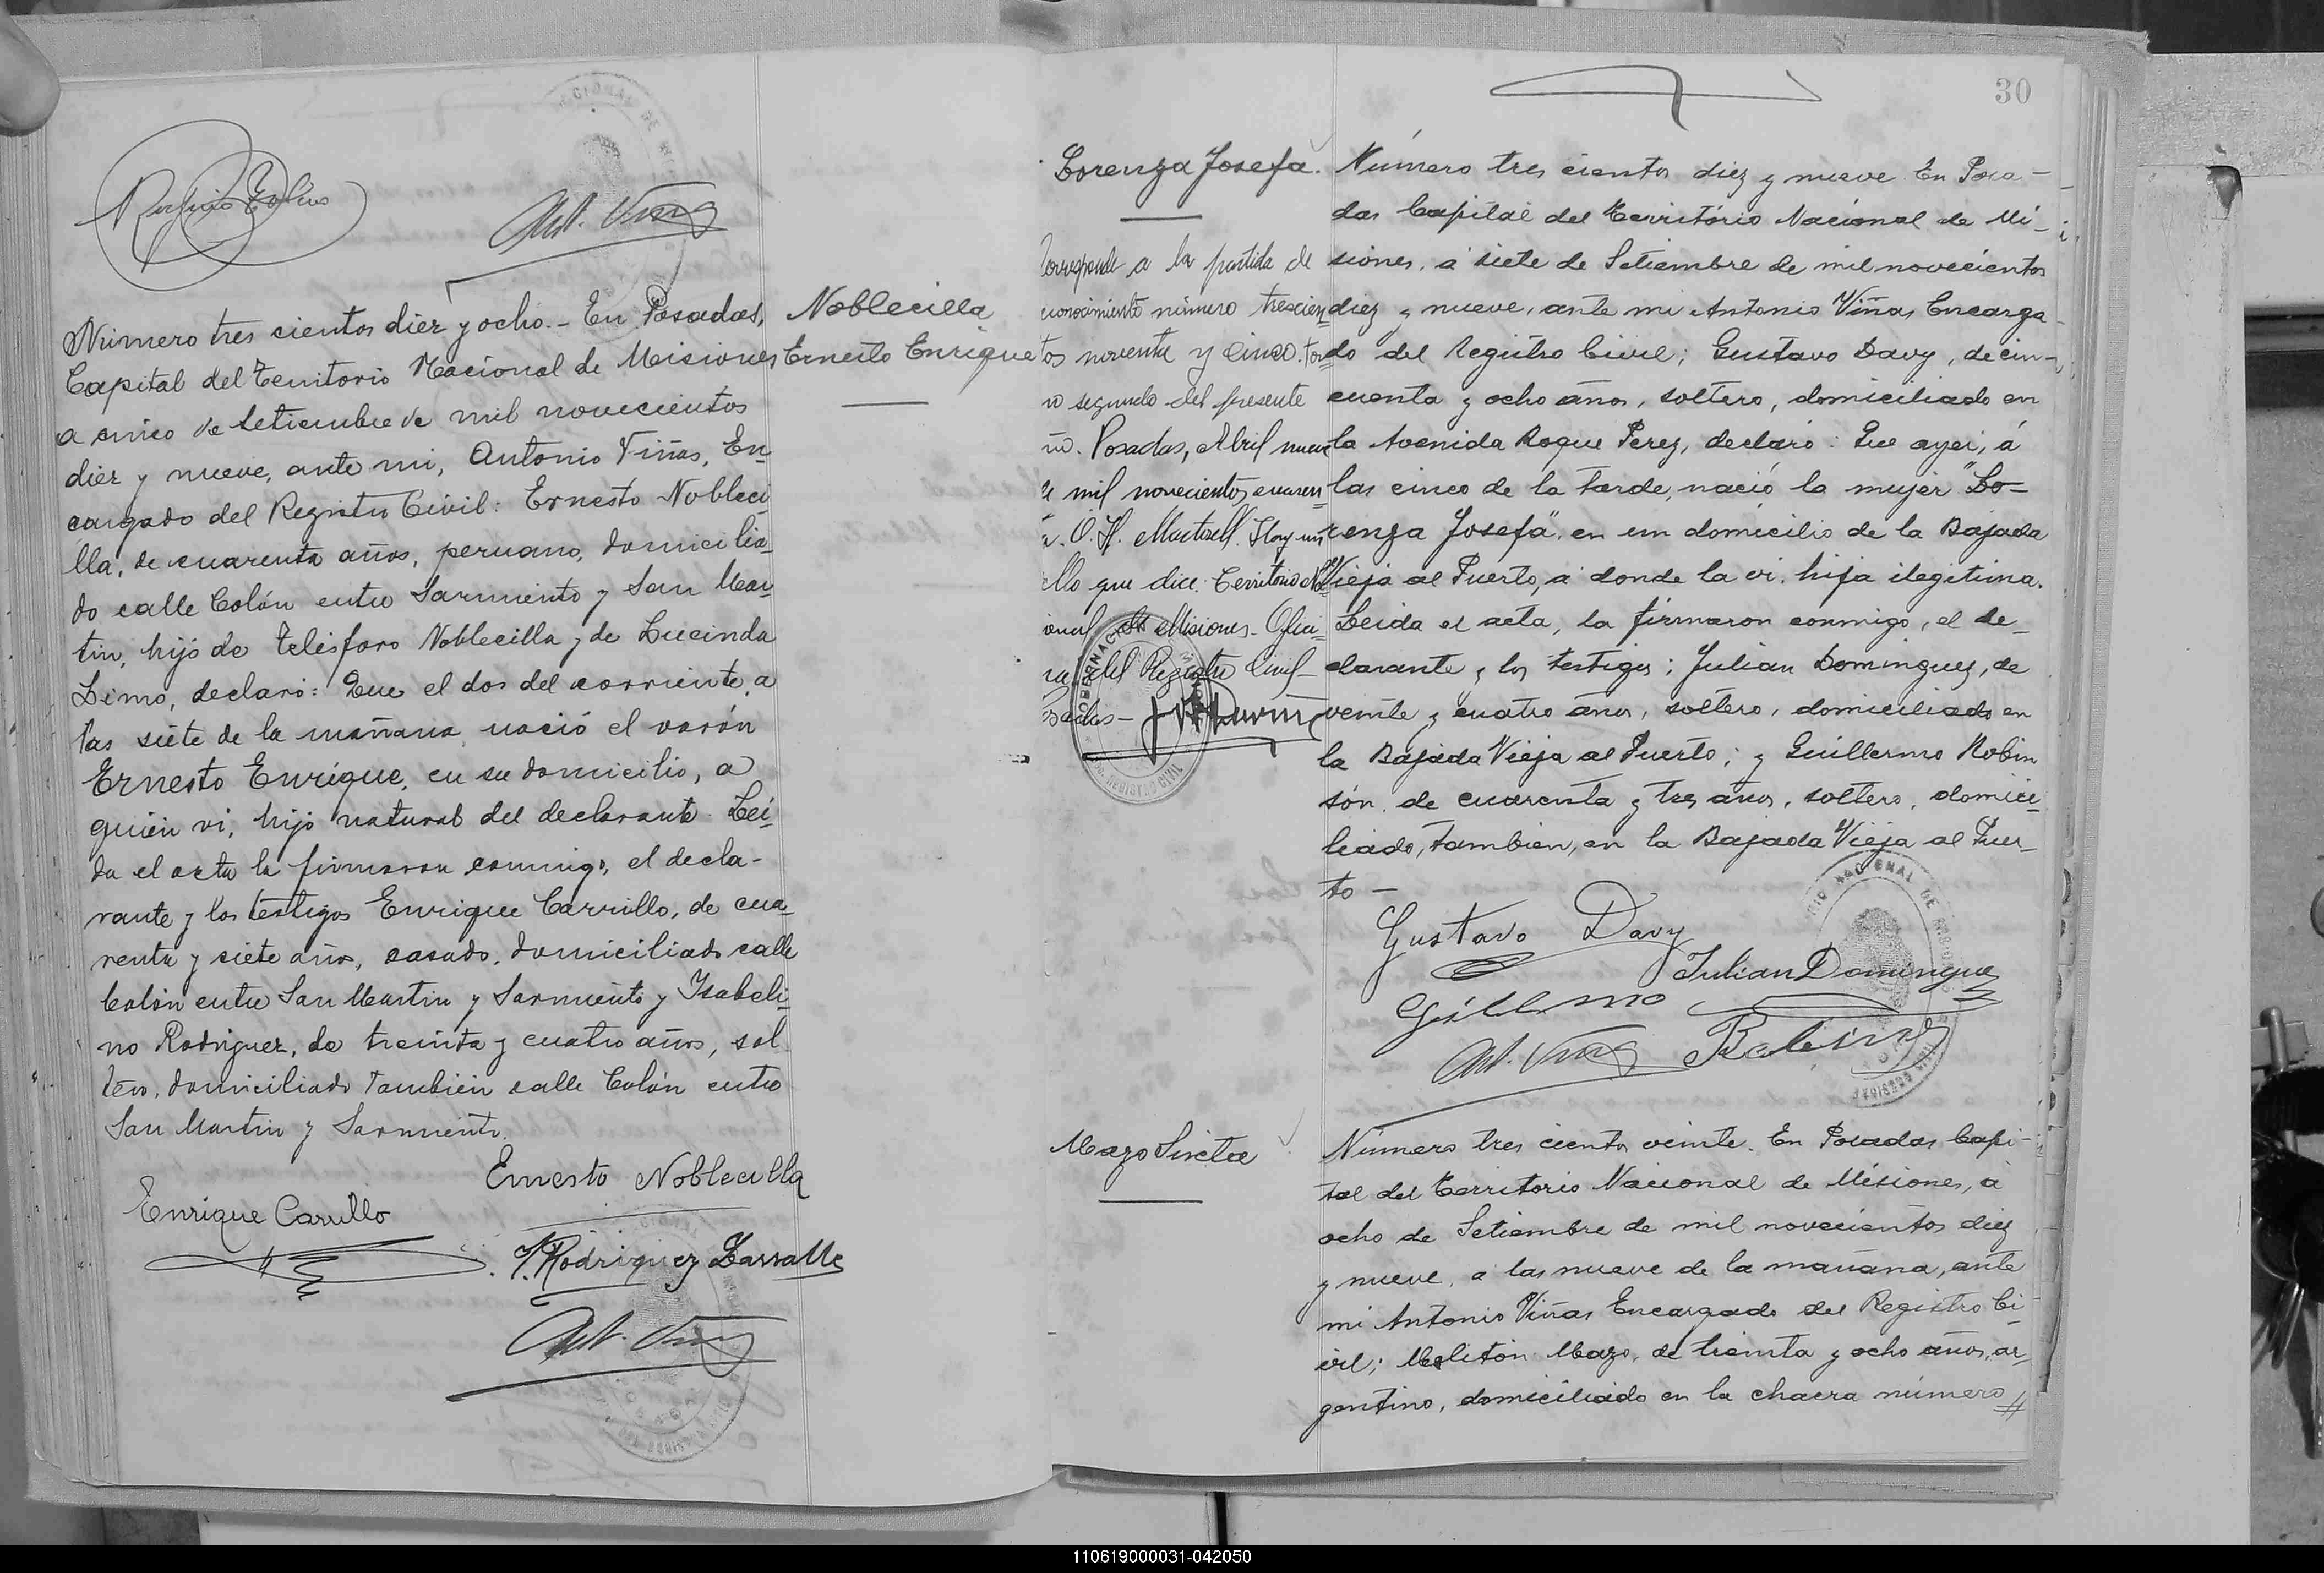 Número tres cientos diez y ocho.- En Posadas,
Capital del Territorio Nacional de Misiones
a cinco de Setiembre de mil novecientos
diez y nueve, ante mi, Antonio Viñas, En-
cargado del Registro Civil: Ernesto Nobleci-
lla, de cuarenta años, peruano, domicilia-
do calle Colón entre Sarmiento y San Mar-
tin, hijo de Telésforo Noblecilla y de Lucinda
Dimo, declaró: Que el dos del corriente, a
las siete de la mañana, nació el varón
Ernesto Enrique, en su domicilio, a
quién vi, hijo natural del declarante. Leí-
da el acta la firmaron conmigo, el decla-
rante y los testigos Enrique Carrillo, de cua-
renta y siete años, casado, domiciliado calle
Colón entre San Martin y Sarmiento y Isabeli-
no Rodriguez, de treinta y cuatro años, sol-
tero, domiciliado también calle Colón entre
San Martin y Sarmiento.
Ernesto Noblecilla
Enrique Carrillo
Y. Rodriguez Lassalle
Ant. Viñas
Noblecilla
Ernesto Enrique
30
Lorenza Josefa.
Corresponde a la partida de
conocimiento número trescien-
tos noventa y cinco. to-
mo segundo del presente
Posadas, Abril nueve
de mil novecientos cuaren-
O. H. Martorell. Hay un
sello que dice: Territorio Na-
cional de Misiones- Ofici-
na del Registro Civil-
Posadas-
Número tres cientos diez y nueve. En Posa-
das Capital del Territorio Nacional de Mi-
siones, á siete de Setiembre de mil novecientos
diez y nueve, ante mi Antonio Viñas Encarga-
do del Registro Civil; Gustavo Davy, de cin-
cuenta y ocho años, soltero, domiciliado en
la Avenida Roque Perez, declaró: Que ayer, á
las cinco de la tarde, nació la mujer "Lo-
renza Josefa", en un domicilio de la Bajada
Vieja al Puerto, á donde la vi, hija ilegitima.
Leida el acta, la firmaron conmigo, el de-
clarante y los testigos; Julian Dominguez, de
veinte y cuatro años, soltero, domiciliado en
la Bajada Vieja al Puerto; y Guillermo Robin-
són, de cuarenta y tres años, soltero, domici-
liado, tambien, en la Bajada Vieja al Puer-
to-
Gustavo Davy
Julian Dominguez
Gillermo
Ant. Viñas
Mazo Sixta
Número tres cientos veinte. En Posadas Capi-
tal del Territorio Nacional de Misiones, á
ocho de Setiembre de mil novecientos diez
y nueve, a las nueve de la mañana, ante
mi Antonio Viñas Encargado del Registro Ci-
vil; Melitón Mazo, de treinta y ocho años, ar-
gentino, domiciliado en la chacra número
110619000031-042050